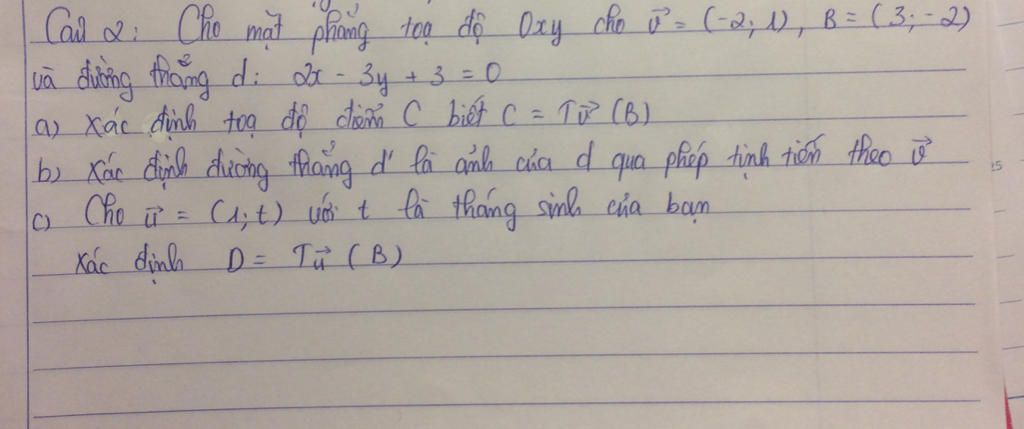 Câu 2: Cho mặt phẳng toạ độ Oxy cho v⃗ = (-2; 1), B = (3; -2)
và đường thẳng d: 2x - 3y + 3 = 0
a) Xác định toạ độ điểm C biết C = Tv⃗ (B)
b) Xác định đường thẳng d' là ảnh của d qua phép tịnh tiến theo v⃗
c) Cho u⃗ = (1; t) với t là tháng sinh của bạn
Xác định D = Tu⃗ (B)